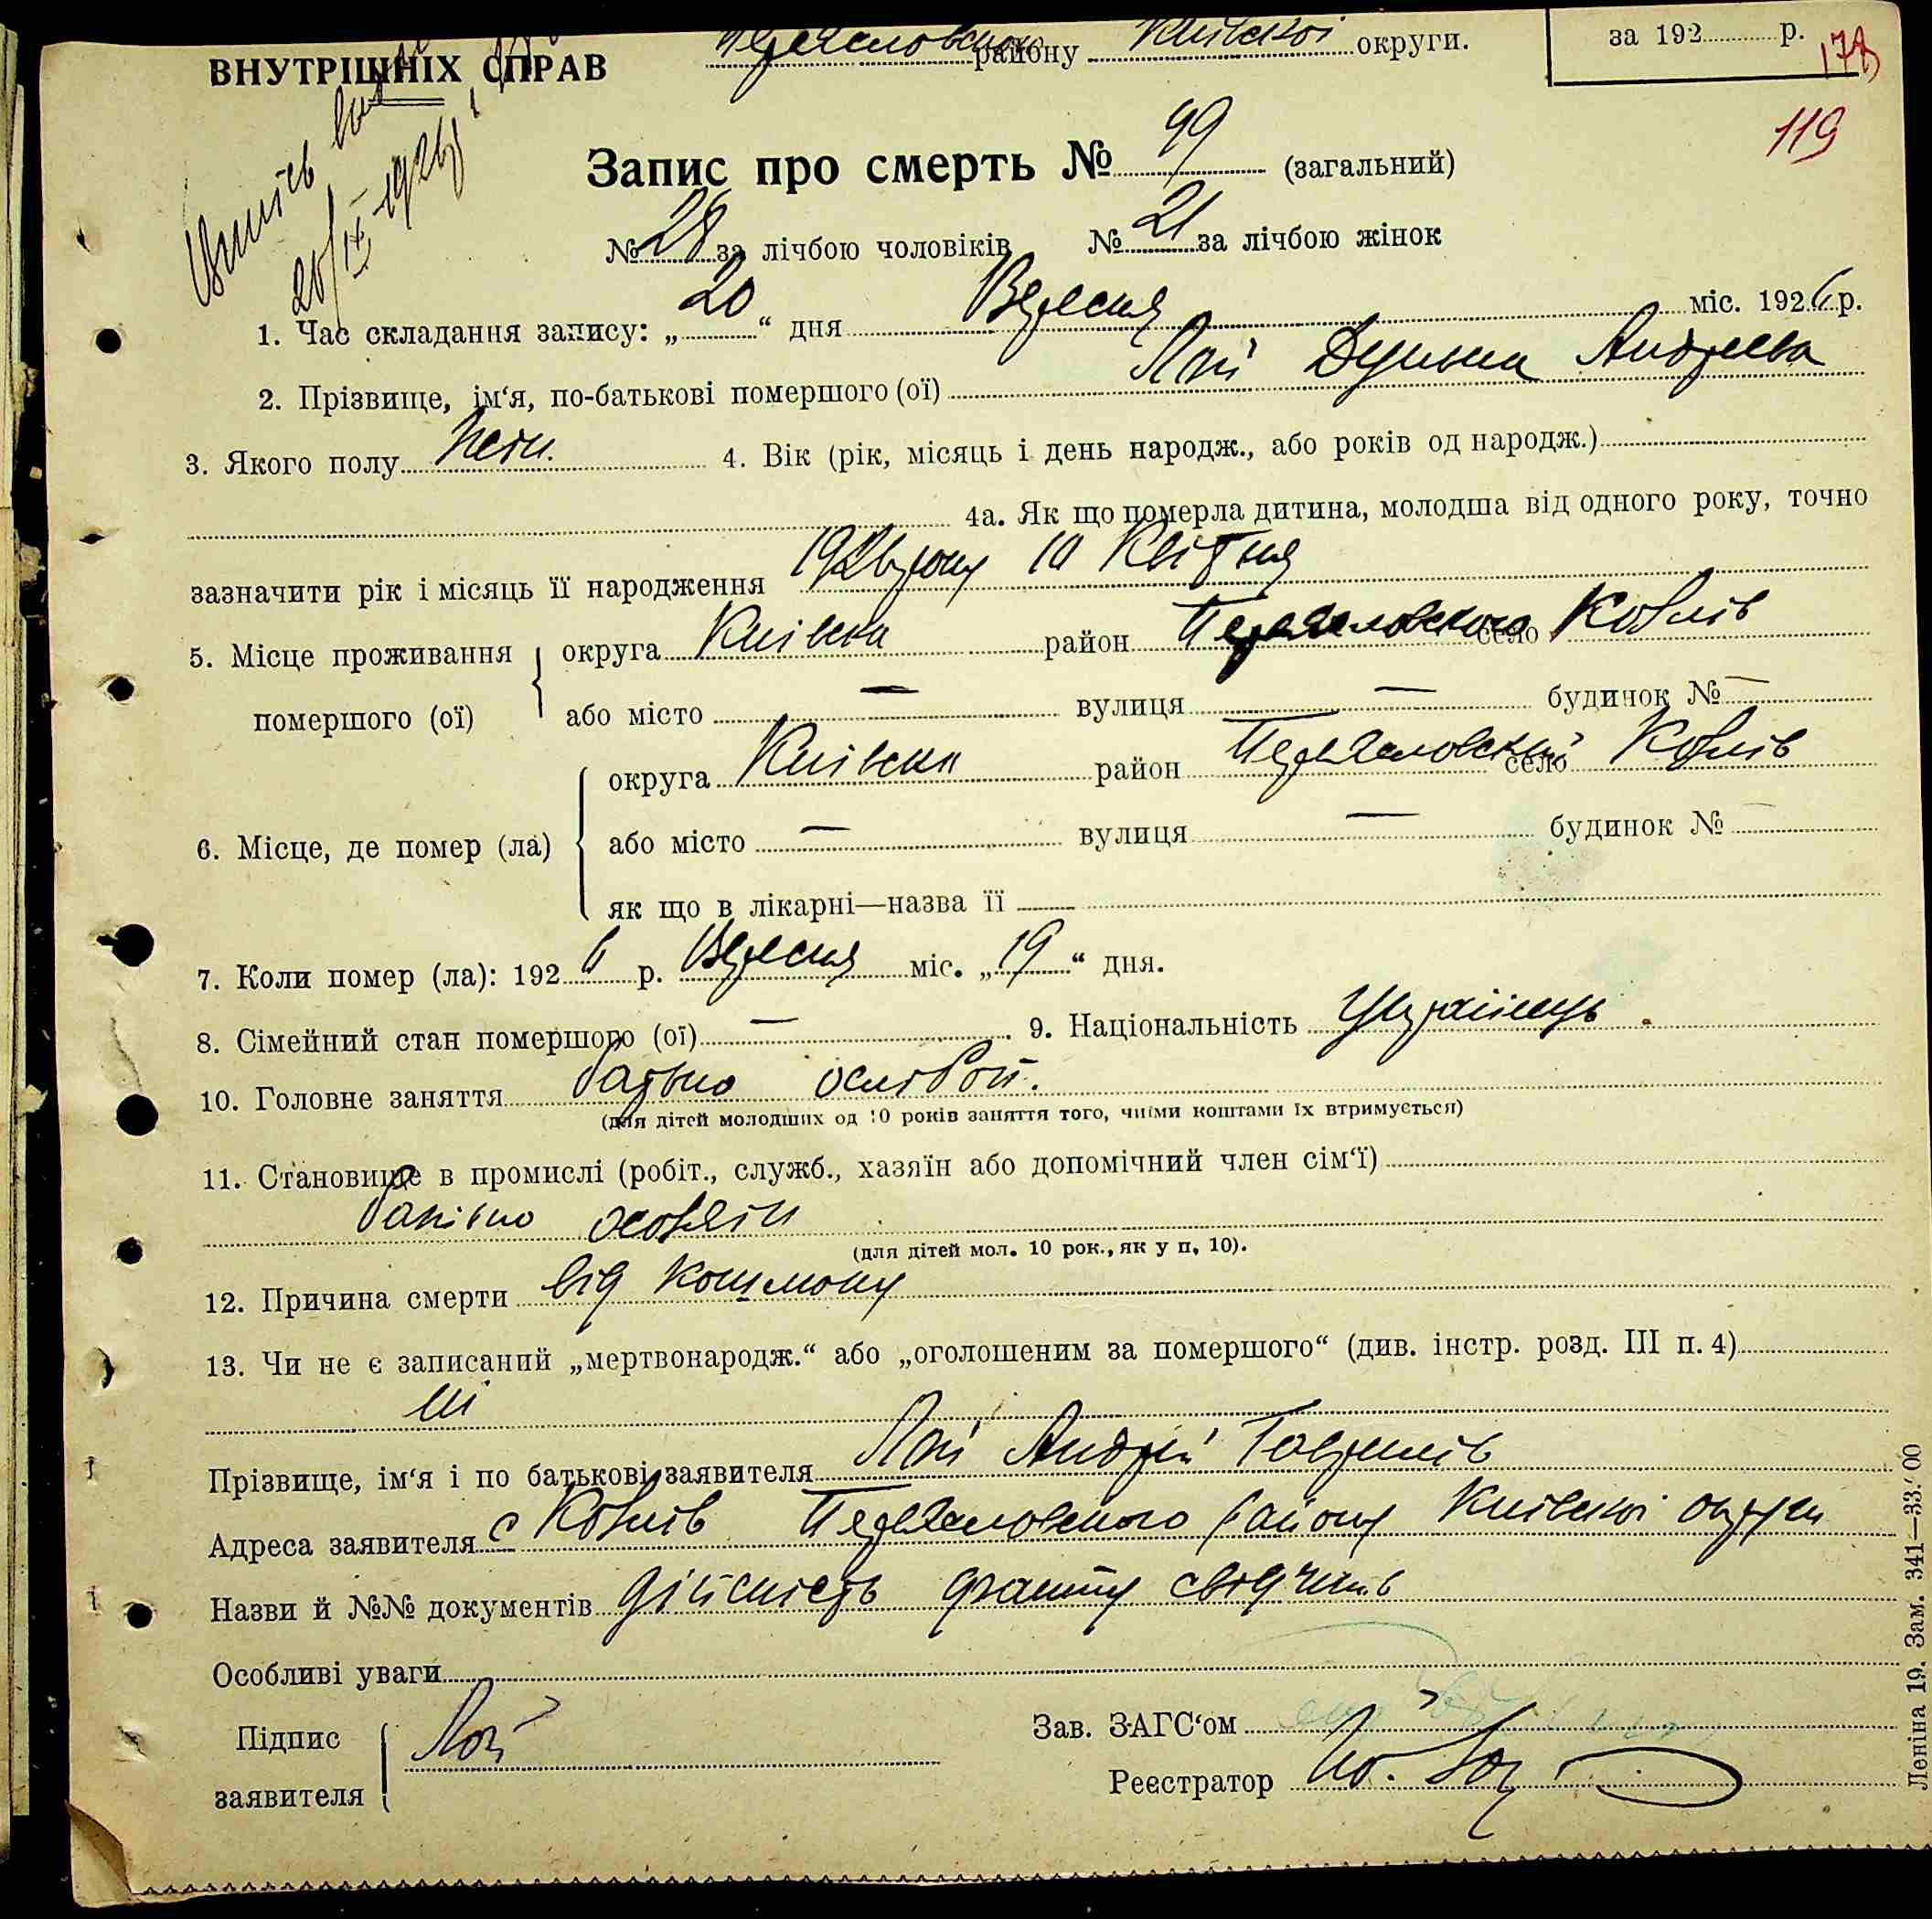 Переяславського району Київської округи.
за 192 р.
ВНУТРІШНІХ СПРАВ
178
119
20/IX 1926 р
Запис про смерть № 49 (загальний)
№ 28 за лічбою чоловіків № 21 за лічбою жінок
1. Час складання запису: „ 20 “ дня Вересня міс. 1926 р.
2. Прізвище, ім‘я, по-батькові помершого (ої) Лой Андреева
3. Якого полу 4. Вік (рік, місяць і день народж., або років од народж.)
4а. Як що померла дитина, молодша від одного року, точно
зазначити рік і місяць її народження 1926 року 10 Квітня
5. Місце проживання округа Київска район Переяславського село
помершого (ої) або місто — вулиця — будинок № —
6. Місце, де помер (ла) округа Київска район Переяславський село
або місто — вулиця — будинок № —
як що в лікарні—назва її —
7. Коли помер (ла): 1926 р. Вересня міс. „ 19 “ дня.
8. Сімейний стан помершого (ої) — 9. Національність Українець
10. Головне заняття батько
(для дітей молодших од 10 років заняття того, чиїми коштами їх втримується)
11. Становище в промислі (робіт., служб., хазяїн або допомічний член сім‘ї)
(для дітей мол. 10 рок., як у п. 10).
12. Причина смерти від
13. Чи не є записаний „мертвонародж.“ або „оголошеним за помершого“ (див. інстр. розд. III п. 4)
ні
Прізвище, ім‘я і по батькові заявителя Лой Андрій Гаврилів
Адреса заявителя с Переяславського району Київської округи
Назви й №№ документів дійсність факту свідчить
Особливі уваги
Підпис заявителя Лой
Зав. ЗАГС‘ом
Реєстратор
Леніна 19. Зам. 341—33.‘00